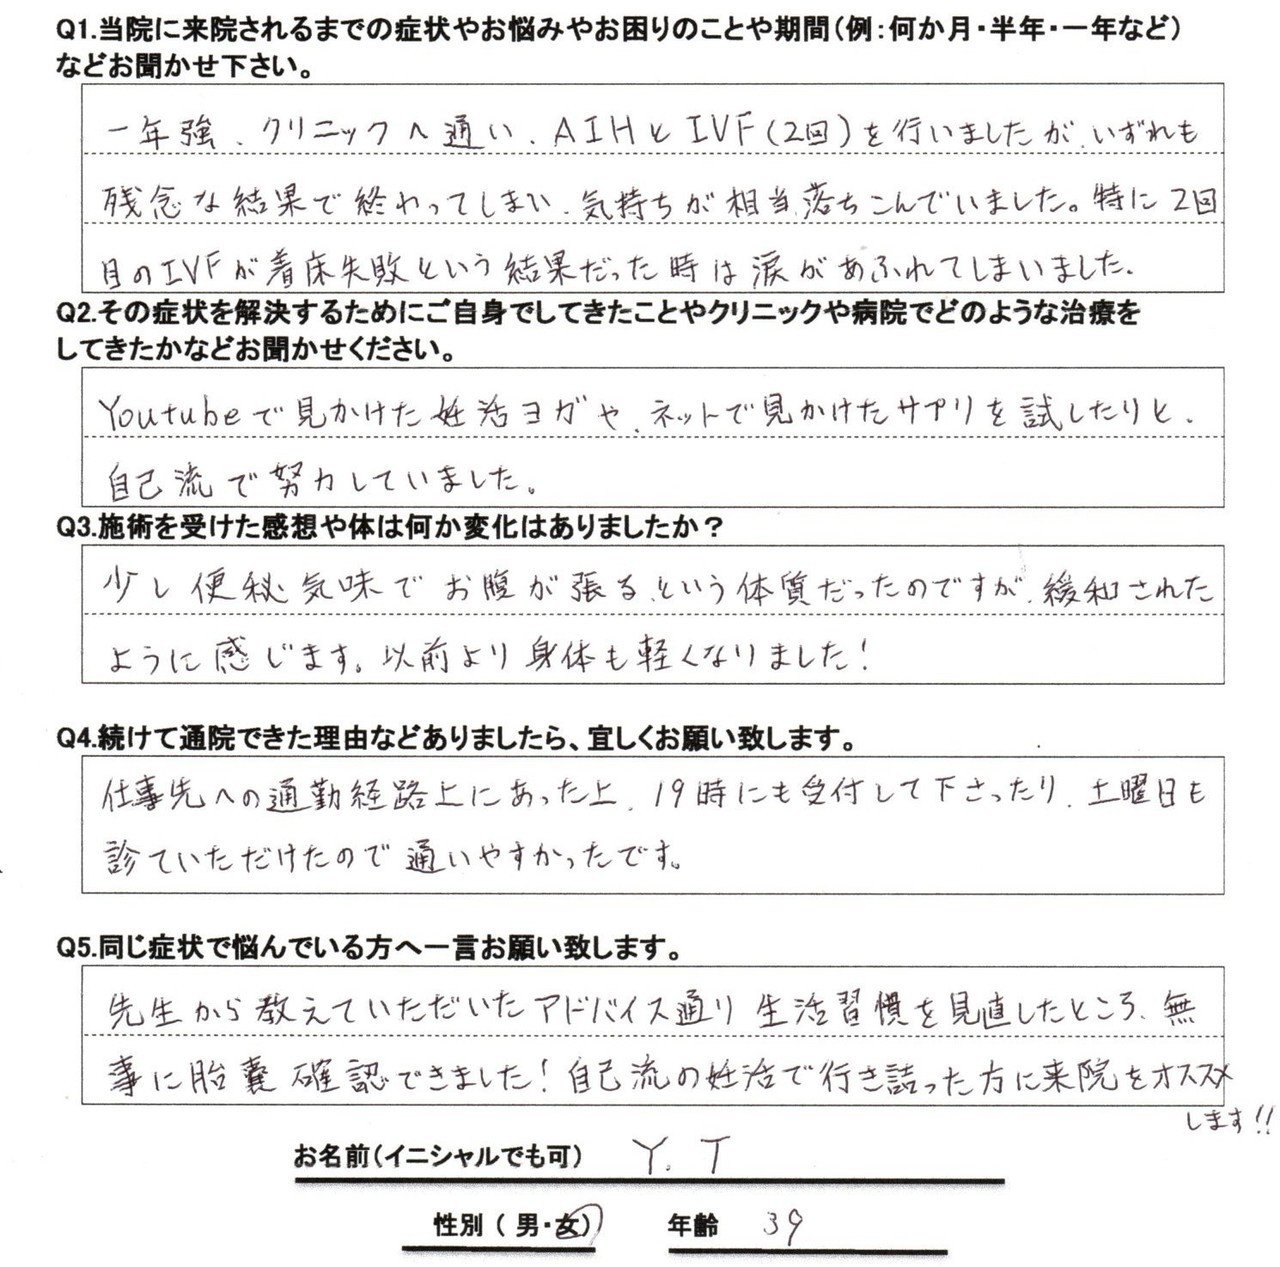 Q1.当院に来院されるまでの症状やお悩みやお困りのことや期間（例：何か月・半年・一年など）
などお聞かせ下さい。
一年強、クリニックへ通い、AIHとIVF(2回)を行いましたが、いずれも
残念な結果で終わってしまい、気持ちが相当落ちこんでいました。特に2回
目のIVFが着床失敗という結果だった時は涙があふれてしまいました。
Q2.その症状を解決するためにご自身でしてきたことやクリニックや病院でどのような治療を
してきたかなどお聞かせください。
Youtubeで見かけた妊活ヨガや、ネットで見かけたサプリを試したりと、
自己流で努力していました。
Q3.施術を受けた感想や体は何か変化はありましたか？
少し便秘気味でお腹が張る、という体質だったのですが、緩和された
ように感じます。以前より身体も軽くなりました！
Q4.続けて通院できた理由などありましたら、宜しくお願い致します。
仕事先への通勤経路上にあった上、19時にも受付して下さったり、土曜日も
診ていただけたので通いやすかったです。
Q5.同じ症状で悩んでいる方へ一言お願い致します。
先生から教えていただいたアドバイス通り生活習慣を見直したところ、無
事に胎嚢確認できました！自己流の妊活で行き詰った方に来院をオススメ
します!!
お名前（イニシャルでも可） Y.T
性別（男・女） 年齢 39